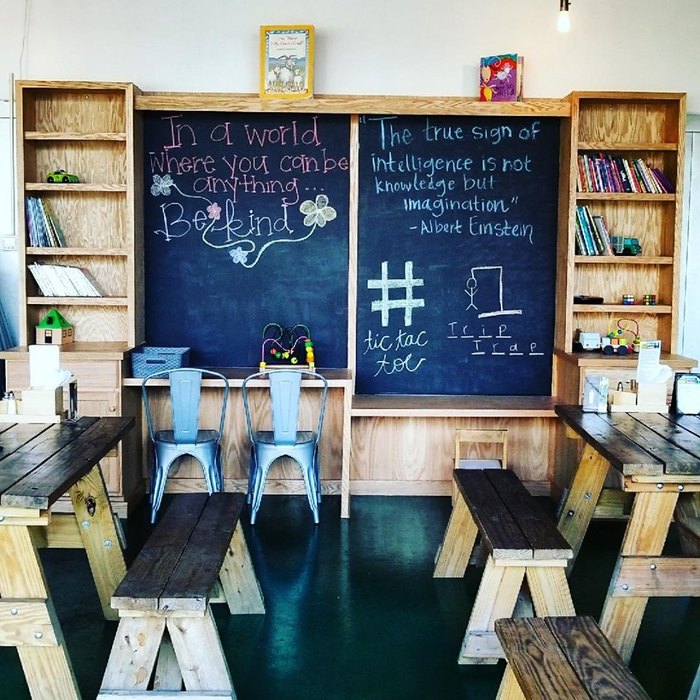 In a world
where you can be
anything...
Be kind
"The true sign of
intelligence is not
knowledge but
imagination"
- Albert Einstein
#
tic tac
toe
Trip
Trap